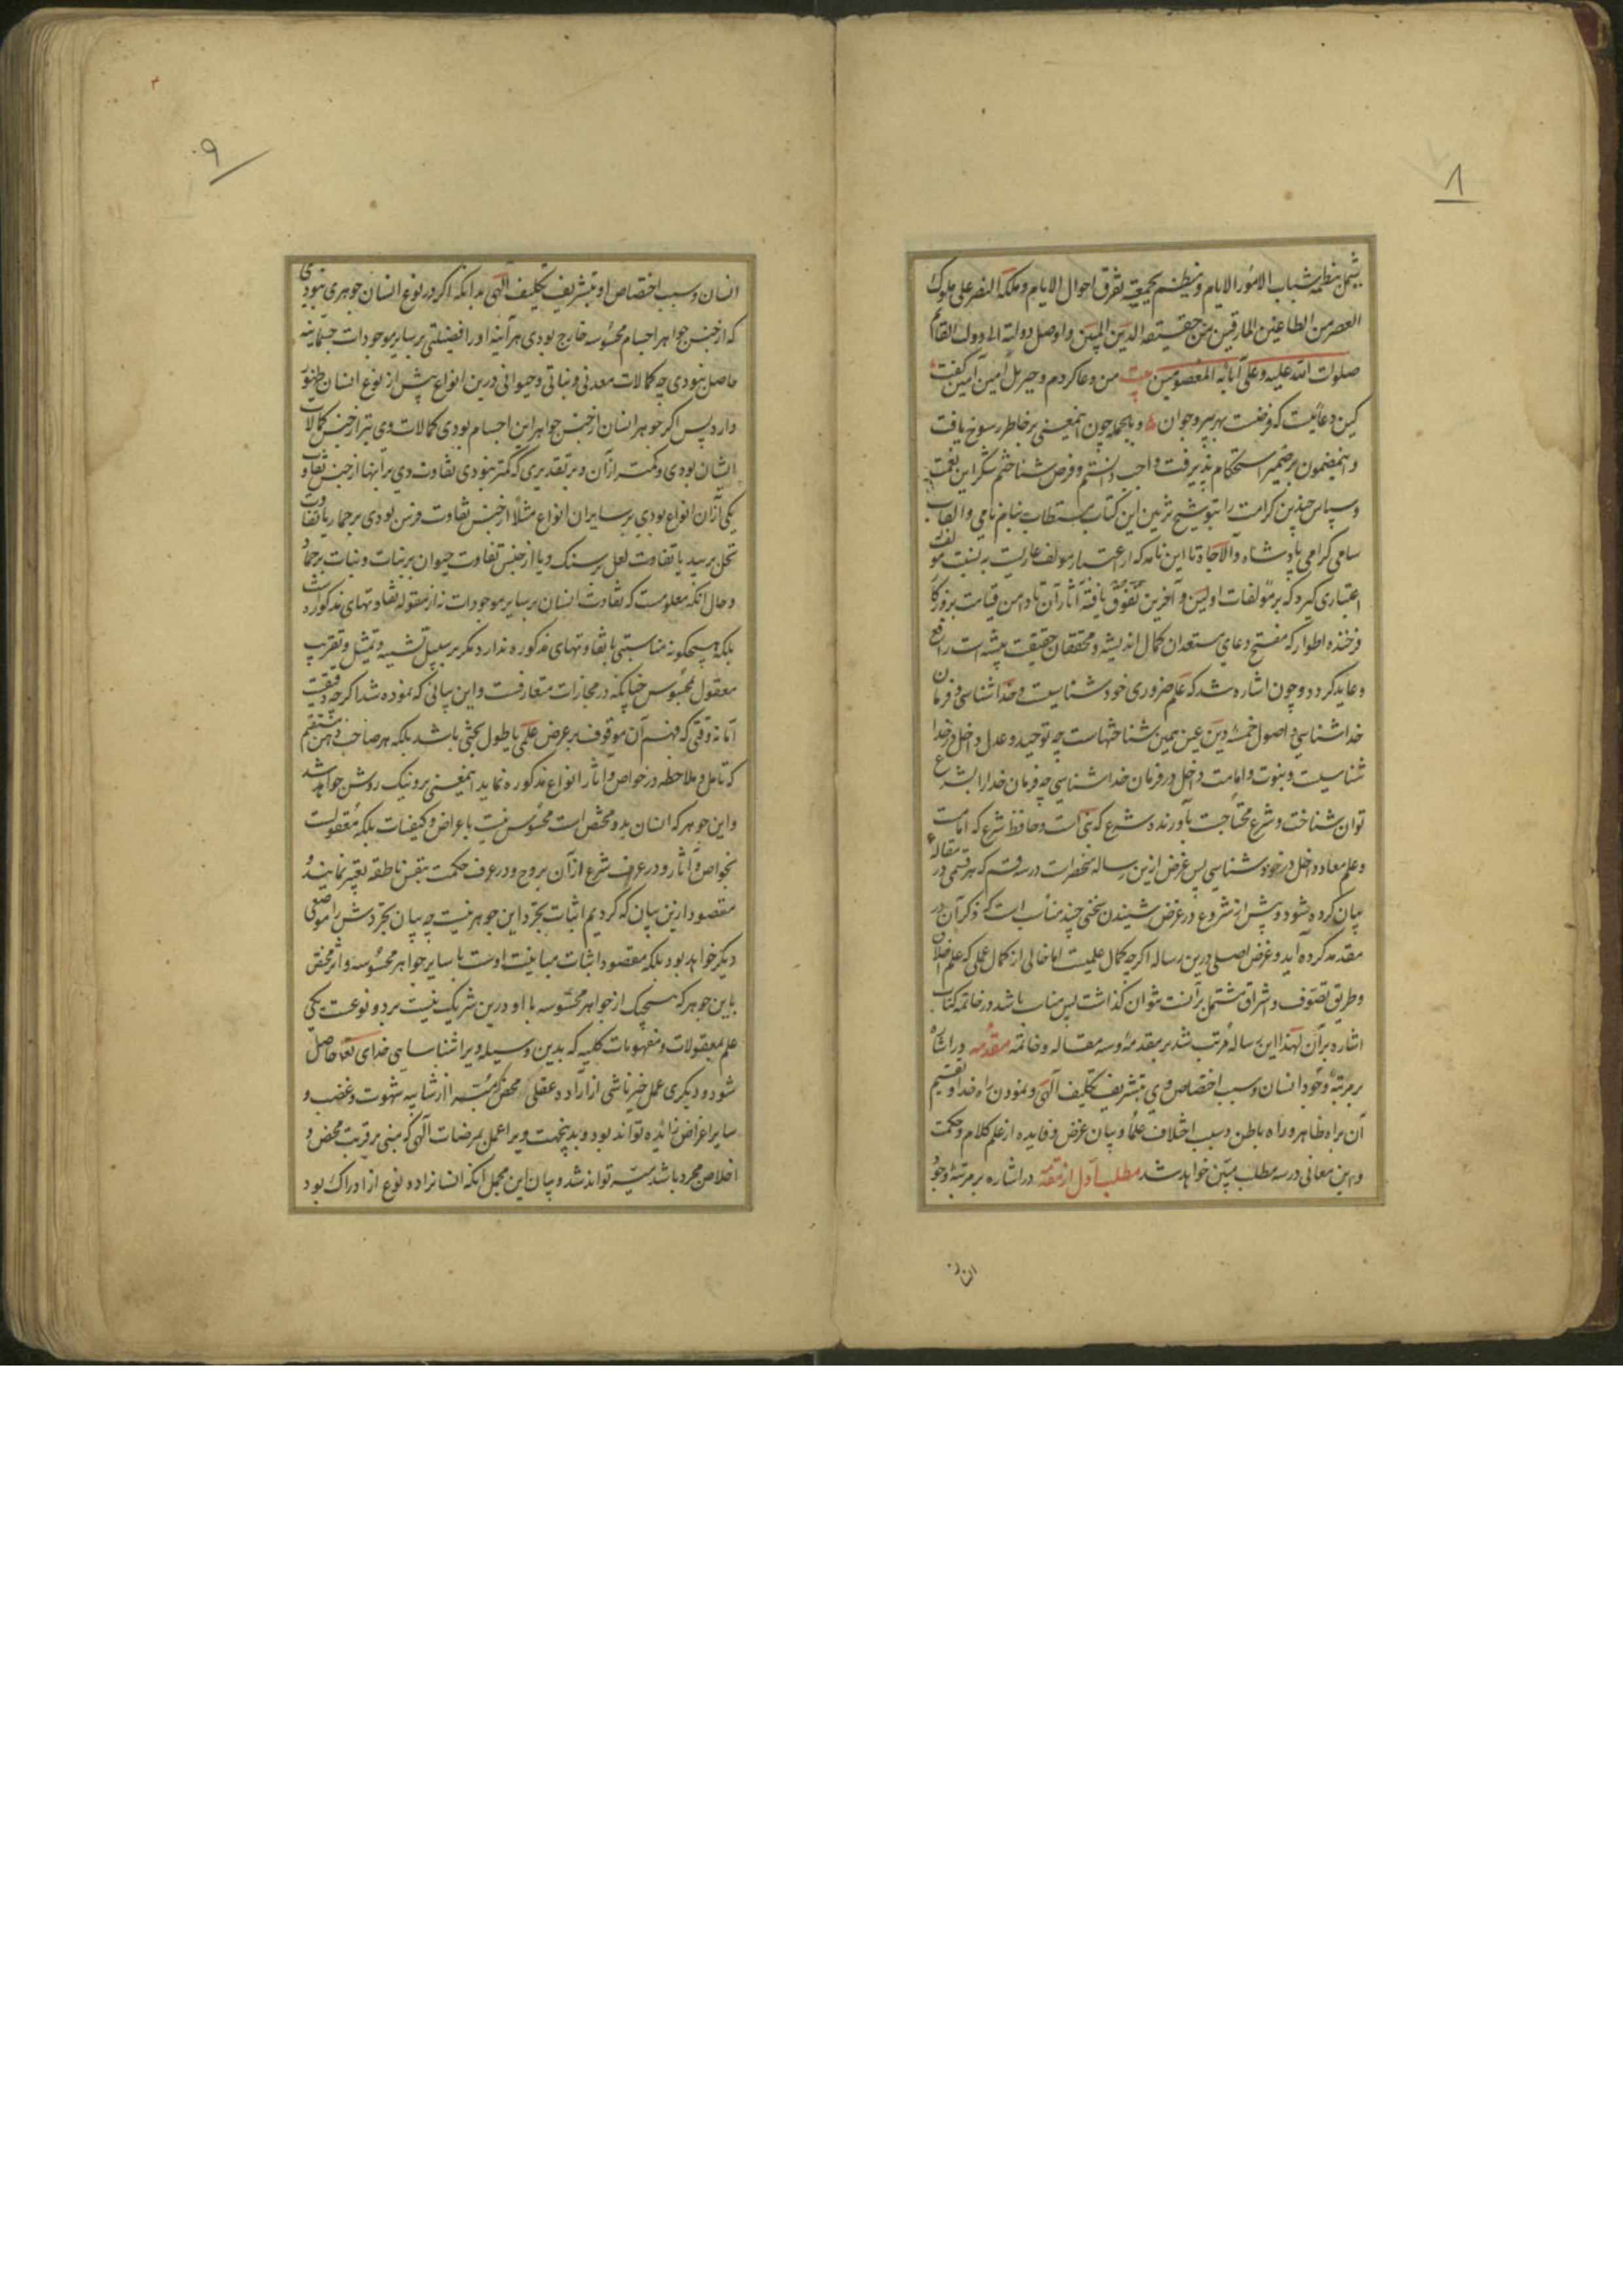 ۸
یشمل بنظمه شتات الامور الایام و ینظم بجمعیته تفرق احوال الایام و ملکه النصر علی ملوک
العصر من الطاعنین المارقین عن حقیقة الدین المبین و اوصل دولته الی دولة القائم
صلوات الله علیه و علی آبائه المعصومین بیت من دعا کردم و جبریل امین آمین گفت
کین دعائیست که فرضست بهر پیر و جوان و بالجمله چون اینمعنی بر خاطر رسوخ یافت
و اینمضمون بر ضمیر استحکام پذیرفت واجب دانستم و فرض شناختم شکر این نعمت
و سپاس چنین کرامت را بتوشیح تزیین این کتاب مستطاب بنام نامی و القاب
سامی گرامی پادشاه والاجاه تا این نامه که از اعتبار مولف عاریست به نسبت مولف
اعتباری گیرد که بر مولفات اولین و آخرین تفوق یافته آثار آن تا دامن قیامت بروزگار
فرخنده اطوار که مفتح دعای مستعدان کمال اندیشه و محققان حقیقت پیشه است راجع
و عاید گردد و چون اشاره شد که علم ضروری خود شناسیست و خدا شناسی و فرمان
خدا شناسی و اصول خمسهٔ دین عین همین شناختهاست چه توحید و عدل داخل در خدا
شناسیست و نبوت و امامت داخل در فرمان خدا شناسی چه فرمان خدا را بشرع
توان شناخت و شرع محتاجست بآورنده شرع که نبی است و حافظ شرع که امامست
و علم معاد داخل در خود شناسی پس غرض ازین رساله منحصرست در سه قسم که هر قسمی در مقالهٔ
بیان کرده شود و پیش از شروع در غرض شنیدن سخنی چند مناسب است که ذکر آن در
مقدمه کرده آید و غرض اصلی درین رساله اگرچه کمال علمیست اما خالی از کمال عملی که علم اخلاق
و طریق تصوف و اشراق مشتمل بر آنست نتوان گذاشت پس مناسب باشد در خاتمه کتاب
اشاره بر آن لهذا این رساله مرتب شد بر مقدمه و سه مقاله و خاتمه مقدمه در اشاره
بر مرتبهٔ وجود انسان و سبب اختصاص وی بتشریف تکلیف الهی و نمودن راه خدا و تقسیم
آن براه ظاهر و راه باطن و سبب اختلاف علما و بیان غرض و فایده از علم کلام و حکمت
و این معانی در سه مطلب مبین خواهد شد مطلب اول از مقدمه در اشاره بر مرتبهٔ وجود
انسان
۹
۳
انسان و سبب اختصاص او بتشریف تکلیف الهی بدانکه اگر در نوع انسان جوهری نبودی
که از جنس جواهر اجسام محسوسه خارج بودی هر آینه او را فضیلتی بر سایر موجودات جسمانیه
حاصل نبودی چه کمالات معدنی و نباتی و حیوانی درین انواع پیش از نوع انسان ظهور
دارد پس اگر جوهر انسان از جنس جواهر این اجسام بودی کمالات وی نیز از جنس کمالات
ایشان بودی و کمتر از آن و بر تقدیری که کمتر نبودی تفاوت وی بر آنها از جنس تفاوت
یکی از آن انواع بودی بر سایر آن انواع مثلا از جنس تفاوت فرس بودی بر حمار یا تفاوت
نخل بر بید یا تفاوت لعل بر سنگ و یا از جنس تفاوت حیوان بر نبات و نبات بر جماد
و حال آنکه معلومست که تفاوت انسان بر سایر موجودات نه از مقوله تفاوتهای مذکوره است
بلکه هیچگونه مناسبتی با تفاوتهای مذکوره ندارد مگر بر سبیل تشبیه و تمثیل و تقریب
معقول بمحسوس چنانکه در مجازات متعارفست و این بیانی که نموده شد اگرچه دقیقست
اما نه دقتی که فهم آن موقوف بر عرض علمی یا طول بحثی باشد بلکه هر صاحب ذهن مستقیم
که تامل و ملاحظه در خواص و آثار انواع مذکوره نماید اینمعنی برو نیک روشن خواهد شد
و این جوهر که انسان بدو مختص است محسوس نیست باعراض و کیفیات بلکه معقولست
بخواص و آثار و در عرف شرع از آن بروح و در عرف حکمت بنفس ناطقه تعبیر نمایند و
مقصود ازین بیان که کردیم اثبات تجرد این جوهر نیست چه بیان تجردش را موضعی
دیگر خواهد بود بلکه مقصود اثبات مباینت اوست با سایر جواهر محسوسه و اثر مختص
باین جوهر که هیچیک از جواهر محسوسه با او درین شریک نیست بر دو نوعست یکی
علم بمعقولات و مفهومات کلیه که بدین وسیله ویرا شناسایی خدای تعالی حاصل
شود و دیگری عمل خیر ناشی از اراده عقلی محض که مبرا از شایبه شهوت و غضب و
سایر اغراض زائیده تواند بود و بدینجهت ویرا عمل بمرضات الهی که مبنی بر قربت محض و
اخلاص مجرد باشد میسر تواند شد و بیان این مجمل آنکه انسانرا ده نوع از ادراک بود